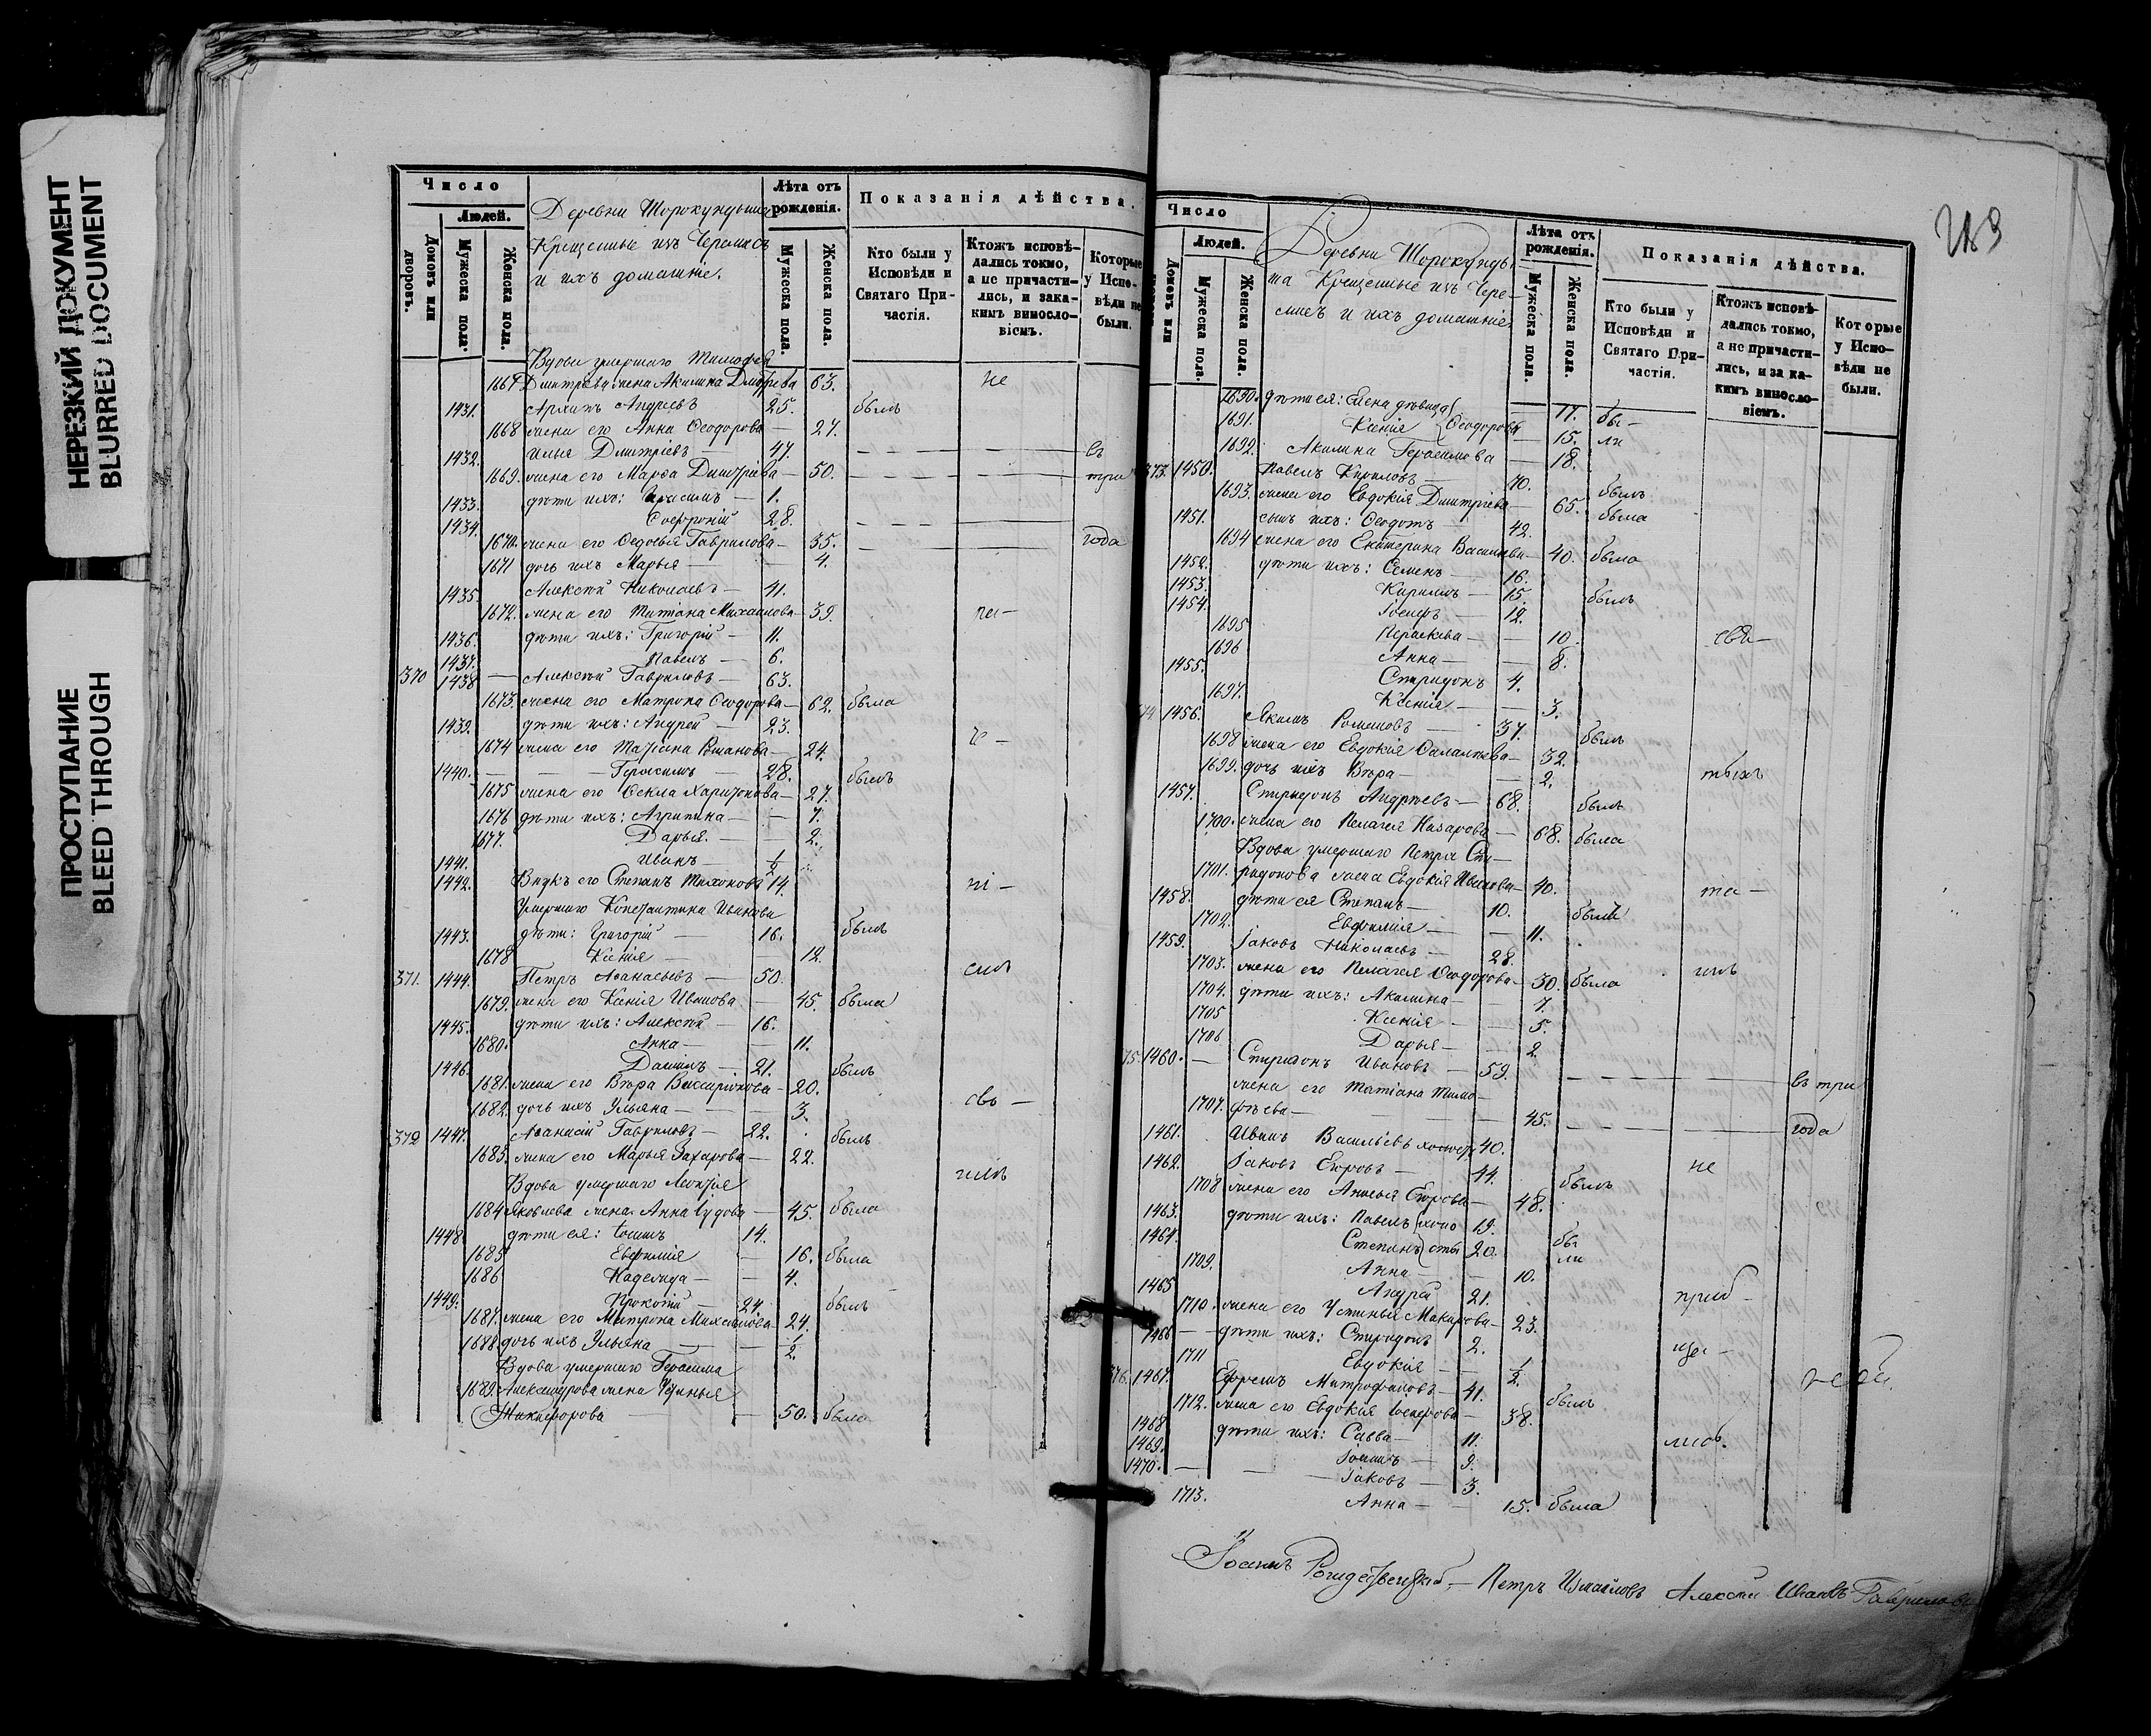 НЕРЕЗКИЙ ДОКУМЕНТ
BLURRED DOCUMENT
ПРОСТУПАНИЕ
BLEED THROUGH
Число
Людей.
Домовъ или дворовъ.
Мужеска пола.
Женска пола.
Деревни Шорокундыша
Крещенные изъ Черемисъ
и ихъ домашніе.
Лѣта отъ рожденія.
Мужеска пола.
Женска пола.
Показанія дѣйства.
Кто были у Исповѣди и Святаго Причастія.
Ктожъ исповѣдались токмо, а не причастились, и закакимъ винословіемъ.
Которые у Исповѣди не были.
Вдова умершаго Тимофея
1667 Дмитріева жена Акилина 63. не
1431. Архипъ Андреевъ 25. былъ
1668 жена его Анна Ѳеодорова — 27.
1432. Илья Дмитріевъ — 47. въ
1669. жена его Марѳа Дмитріева — 50. три
1433. дѣти ихъ: — 1.
1434. Софроній 28.
1670. жена его Гаврилова — 35. года
1671 дочь ихъ Марья — 4.
1435. Алексѣй Николаевъ — 41.
1672. жена его Татіана Михаилова — 39.
1436. дѣти ихъ: Григорій — 11.
1437. Павелъ — 6.
370 1438 — Алексѣй Гавриловъ — 63.
1673. жена его Матрона Ѳеодорова — 62. была
1439. дѣти ихъ: Андрей — 23.
1674 жена его Татіана Романова — 24.
1440. — Герасимъ — 28. былъ
1675 жена его Ѳекла Харитонова — 27.
1676 дѣти ихъ: Агрипина — 7.
1677. Дарья. — 2.
1441. Иванъ — 1/2
1442. Внукъ его Степанъ Тихоновъ 14. ні —
Умершаго Константина Иванова
1443. дѣти: Григорій — 16. былъ
1678 Ксенія — 12.
371. 1444. Петръ Аѳанасьевъ — 50.
1679. жена его Ксенія Иванова. — 45. была
1445. дѣти ихъ: Алексѣй — 16.
1680. Анна — 11.
1446. Даніилъ — 21. былъ
1681. жена его Вѣра Виссаріонова — 20.
1682. дочь ихъ Ульяна — 3. свѣ —
372 1447. Аѳанасій Гавриловъ — 22. былъ
1683. жена его Марья Захарова — 22.
Вдова умершаго Леонтія
1684 Яковлева жена Анна Іудова — 45. была
1448. дѣти ея: Іоаннъ 14.
1685 Евфимія — 16. была
1686 Надежда — 4.
1449. Прокопій — 24. былъ
1687. жена его Матрона Михаилова — 24.
1688. дочь ихъ Ульяна — 1/2.
Вдова умершаго Герасима
1689. Александрова жена Устинья
Никифорова — 50. была
Число
Людей.
Домовъ или
Мужеска пола.
Женска пола.
Деревни Шорокунды
ша Крещенные изъ Чере-
мисъ и ихъ домашніе.
Лѣта отъ рожденія.
Мужеска пола.
Женска пола.
Показанія дѣйства.
Кто были у Исповѣди и Святаго Причастія.
Ктожъ исповѣдались токмо, а не причастились, и за какимъ винословіемъ.
Которые у Исповѣди не были.
1690. дѣти ея: Елена дѣвица — 17. бы-
1691. Ксенія Ѳеодоровы — 15. ли
1692. Акилина Герасимова — 18.
373. 1450. Павелъ Кириловъ — 70. былъ
1693. жена его Евдокія Дмитріева — 65. была
1451. сынъ ихъ: Ѳеодотъ — 42.
1694 жена его Екатерина Васильева — 40. была
1452. дѣти ихъ: Семенъ — 16.
1453. Кирилъ — 15. былъ
1454. Іосифъ — 12.
1695 Параскева — 10.
1696 Анна — 8.
1455. Спиридонъ 4.
1697. Ксенія — 3.
374 1456. Якимъ Романовъ 37. былъ
1698 жена его Евдокія — 32.
1699. дочь ихъ Вѣра — 2. тыхъ
1457. Спиридонъ Андреевъ — 68. былъ
1700. жена его Пелагея Назарова — 68. была
Вдова умершаго Петра Спи-
1701. ридонова жена Евдокія Иванова — 40. та —
1458. дѣти ея Степанъ — 10. были
1702. Евфимія — 11.
1459. Іаковъ Николаевъ — 28.
1703. жена его Пелагея Ѳеодорова — 30. была
1704. дѣти ихъ: Акилина — 7.
1705 Ксенія — 5.
1706 Дарья — 2
375. 1460. — Спиридонъ Ивановъ — 59. въ три
жена его Татіана Тимо-
1707. фѣева — 45. года
1461. Иванъ Васильевъ холостъ 40.
1462. Іаковъ Егоровъ — 44. былъ не
1708 жена его Анисья Егорова — 48.
1463. дѣти ихъ: Павелъ холо 19.
1464. Степанъ сты 20. бы ли
1709. Анна — 10.
1465 Андрей 21.
1710. жена его Устинья Макарова — 23.
1466 — дѣти ихъ: Спиридонъ 2.
1711 Евдокія — 1/2.
376. 1467. Ефремъ Митрофановъ — 41. былъ
1712. жена его Евдокія Іосифова — 38.
1468 дѣти ихъ: Савва — 11.
1469. Іоаннъ — 9.
1470. — Іаковъ — 3.
1713. Анна — 15. была
Іоаннъ Рождественскій, — Петръ Измайловъ Алексѣй Ивановъ Гавриловъ